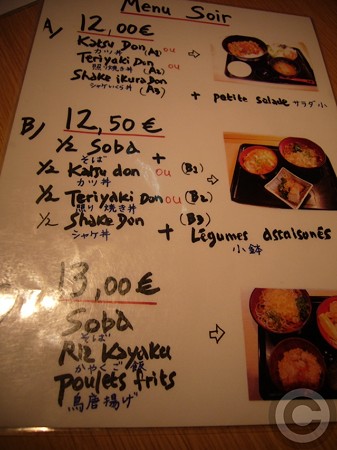 Menu Soir
A) 12,00€
Katsu Don (A1) ou
カツ丼
Teriyaki Don (A2) ou
照り焼き丼
Shake ikura Don (A3)
シャケいくら丼
+ petite salade サラダ小
B) 12,50€
1/2 Soba +
そば
1/2 Katsu don ou (B1)
カツ丼
1/2 Teriyaki Don ou (B2)
照り焼き丼
1/2 Shake Don (B3)
シャケ丼
+ Légumes assaisonés
小鉢
13,00€
Soba
そば
Riz Kayaku
かやくご飯
Poulets frits
鳥唐揚げ
©